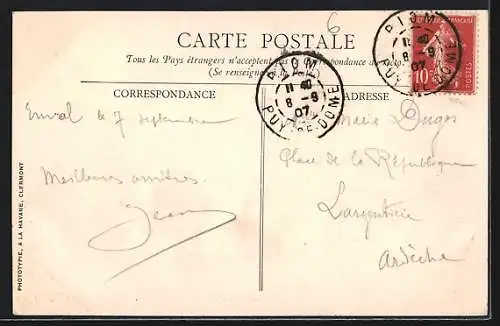 6
CARTE POSTALE
Tous les Pays étrangers n'acceptent pas la Correspondance au recto.
(Se renseigner à la Poste)
CORRESPONDANCE
ADRESSE
RIOM
11 40
8 - 9
07
PUY-DE-DOME
RIOM
11 40
8 - 9
07
PUY-DE-DOME
FRANÇAISE
10
POSTES
Enval le 7 septembre
Meilleures amitiés
Jean
Marie Dugos
Place de la République
Largentière
Ardèche
PHOTOTYPIE, A LA HAVARE, CLERMONT